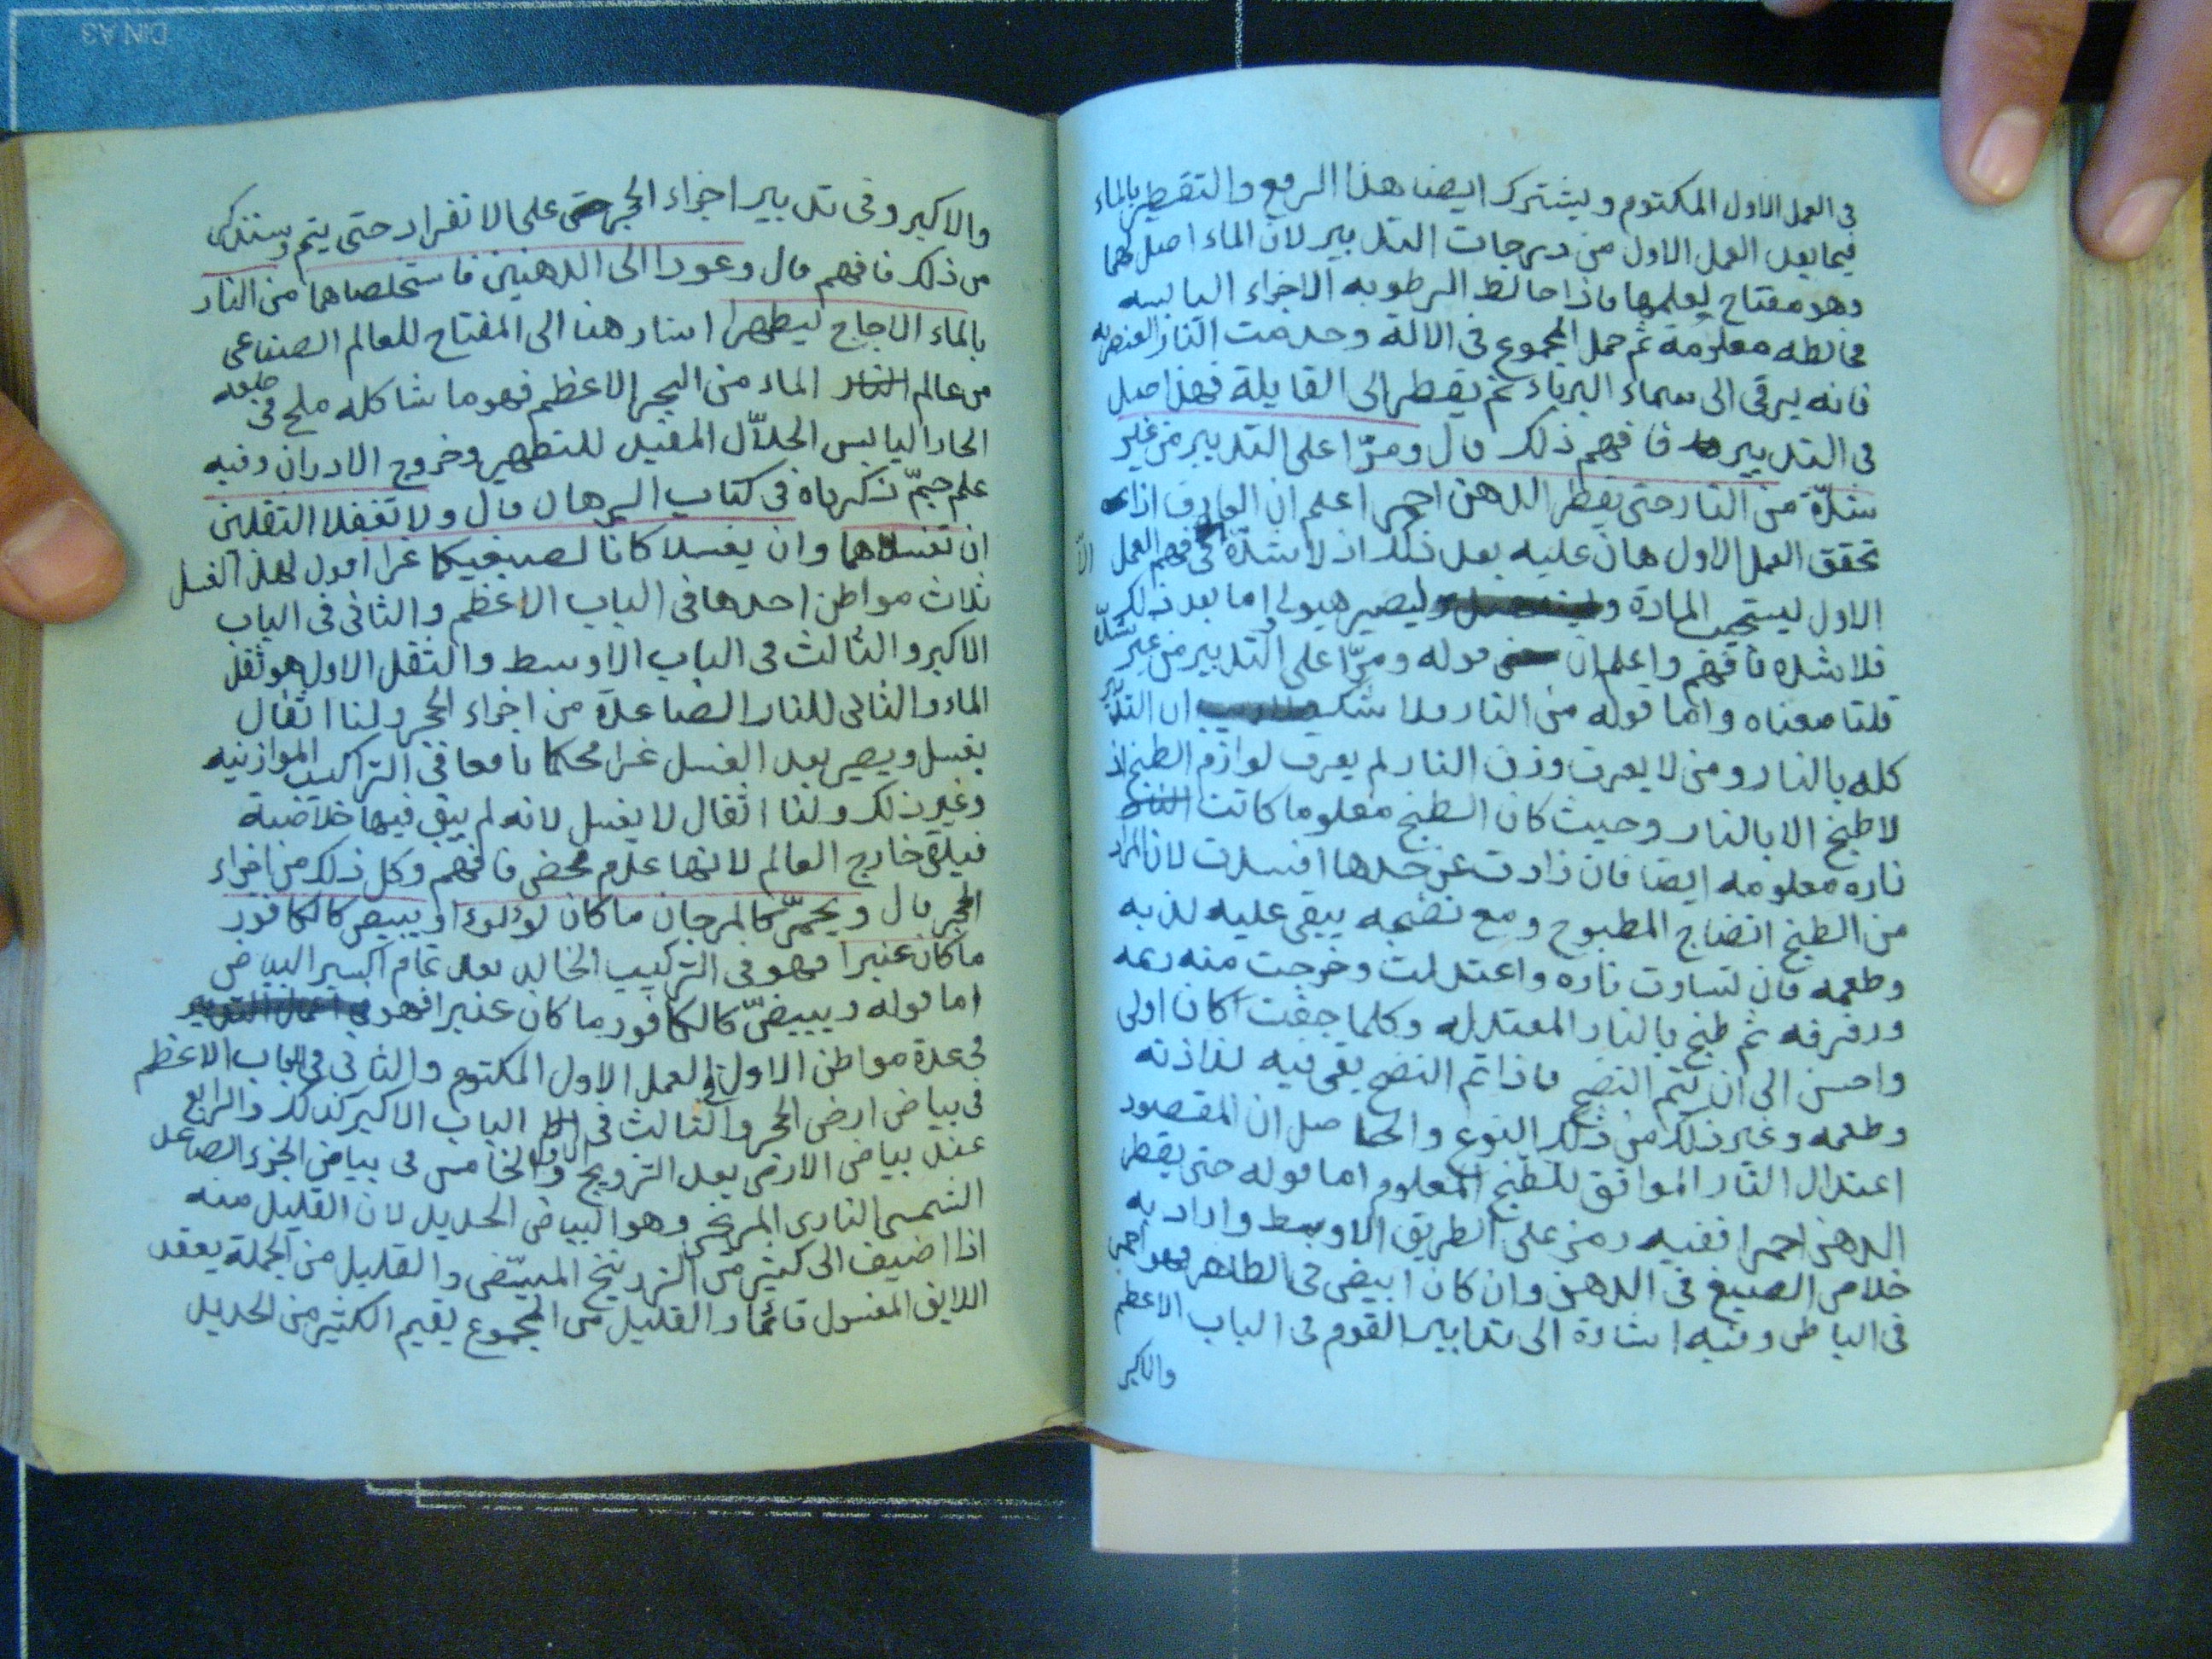 في العمل الاول المكتوم ويشترك ايضا هذا الرفع والتقطير بالماء
فيما بعد العمل الاول من درجات التدبير لان الماء اصل لهما
وهو مفتاح لعلمها فاذا خالط الرطوبه الاجزاء اليابسه
مخالطه معلومة ثم حمل المجموع في الالة وخدمت النار العنصريه
فانه يرقى الى سماء البرباء ثم يقطر الى القابلة فهذا اصل
في التدبير فافهم ذلك قال ومرّا على التدبير من غير
شدّة من النار حتى يقطر الدهن احمرا اعلم ان العارف اذا
تحقق العمل الاول هان عليه بعد ذلك اذ لا شدّة في فهم العمل الّا
الاول ليستجيب المادة وليصير هيولى واما بعد ذلك
فلا شده فافهم واعلم ان قوله ومرّا على التدبير من غير شدّة
قلنا معناه واما قوله من النار فلا شك ان التدبير
كله بالنار ومن لا يعرف وزن النار لم يعرف لوازم الطبخ اذ
لا طبخ الا بالنار وحيث كان الطبخ معلوما كانت
ناره معلومه ايضا فان زادت عن حدها افسدت لان المراد
من الطبخ انضاج المطبوخ ومع نضجه يبقى عليه لذيه
وطعمه فان تساوت ناره واعتدلت وخرجت منه ريمه
ورفرفه ثم طبخ بالنار المعتدله وكلما جفت كان اولى
واحسن الى ان يتم النضج فاذا تم النضج بقى فيه لذاذته
وطعمه وغير ذلك من ذلك النوع والحاصل ان المقصود
اعتدال النار الموافق للطبخ المعلوم اما قوله حتى يقطر
الدهن احمرا ففيه رمز على الطريق الاوسط واراد به
خلاص الصبغ في الدهن وان كان ابيض في الظاهر فهو احمر
في الباطن وفيه اشارة الى تدابير القوم في الباب الاعظم
والاكبر
والاكبر وفي تدبير اجزاء الحجر على الانفراد حتى يتم وستذكر
من ذلك فافهم قال وعودا الى الدهنين فاستخلصاهما من النار
بالماء الاجاج ليطهرا اشار هنا الى المفتاح للعالم الصناعى
من عالم الماء من البحر الاعظم فهو ما شاكله ملح في طبعه
الحار اليابس الحلاّل المفيد للتطهير وخروج الادران وفيه
علم جمّ ذكرناه في كتاب البرهان قال ولا تغفلا الثقلين
ان تغسلاهما وان يغسلا كانا لصبغيكما غرا اقول لهذا الغسل
ثلاث مواطن احدها في الباب الاعظم والثاني في الباب
الاكبر والثالث في الباب الاوسط والثقل الاول هو ثقل
الماء والثانى للنار الصاعدة من اجزاء الحجر ولنا اثقال
يغسل ويصير بعد الغسل غرا محكما نافعا في التراكيب الموازنيه
وغير ذلك ولنا اثقال لا يغسل لانه لم يبق فيها خلاصة
فيلقى خارج العالم لانها عدم محض فافهم وكل ذلك من اجزاء
الحجر قال ويحمرّ كالمرجان ما كان لؤلؤا ويبيض كالكافور
ما كان عنبرا فهو في التركيب الخالد بعد تمام اكسير البياض
اما قوله ويبيضّ كالكافور ما كان عنبرا فهو
في عدة مواطن الاول في العمل الاول المكتوم والثانى في الباب الاعظم
في بياض ارض الحجر والثالث في الباب الاكبر كذلك والرابع
عند بياض الارض بعد التزويج الاول والخامس في بياض الجزء الصاعد
الشمسى النارى المريخى وهو البياض الحديد لان القليل منه
اذا اضيف الى كثير من الزرنيخ المبيّض والقليل من الجملة يعقد
الابق المغسول قائما والقليل من المجموع يقيم الكثير من الحديد